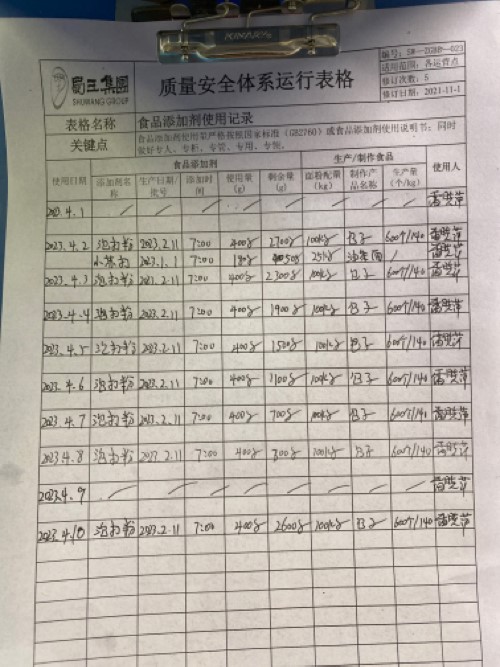 KINARY
蜀王集團
SHUWANG GROUP
质量安全体系运行表格
编号：SW-ZGBB-023
适用范围：各运营点
修订次数：5
修订日期：2021-11-1
表格名称 食品添加剂使用记录
关键点 食品添加剂使用量严格按照国家标准（GB2760）或食品添加剂使用说明书；同时
做好专人、专柜、专管、专用、专账。
食品添加剂 生产/制作食品
使用日期 添加剂名称 生产日期/批号 添加时间 使用量(g) 剩余量(g) 面粉配量(kg) 制作产品名称 生产量(个/kg) 使用人
2023.4.1 / / / / / / / /
2023.4.2 泡打粉 2023.2.11 7:00 400g 2700g 100kg 包子 600个/140
小苏打 2023.1.1 7:00 25kg 油 /
2023.4.3 泡打粉 2023.2.11 7:00 400g 2300g 100kg 包子 600个/140
2023.4.4 泡打粉 2023.2.11 7:00 400g 1900g 100kg 包子 600个/140
2023.4.5 泡打粉 2023.2.11 7:00 400g 1500g 100kg 包子 600个/140
2023.4.6 泡打粉 2023.2.11 7:00 400g 1100g 100kg 包子 600个/140
2023.4.7 泡打粉 2023.2.11 7:00 400g 700g 100kg 包子 600个/141
2023.4.8 泡打粉 2023.2.11 7:00 400g 300g 100kg 包子 600个/140
2023.4.9 / / / / / / / /
2023.4.10 泡打粉 2023.2.11 7:00 400g 2600g 100kg 包子 600个/140